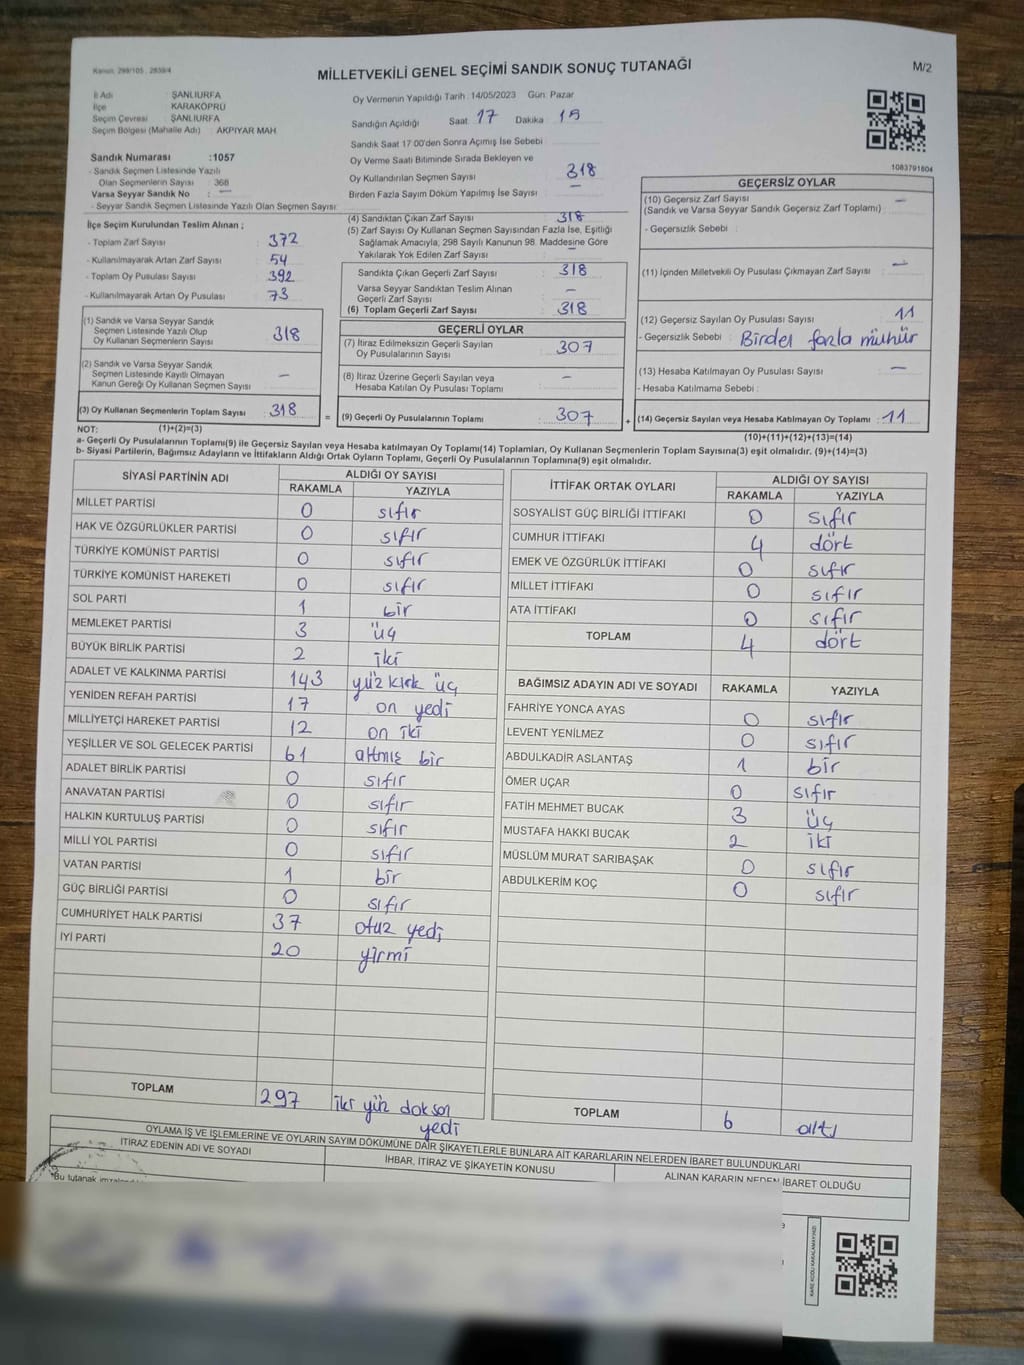 Kanun: 298/105 , 2839/4
MİLLETVEKİLİ GENEL SEÇİMİ SANDIK SONUÇ TUTANAĞI
M/2
İl Adı : ŞANLIURFA
İlçe : KARAKÖPRÜ
Seçim Çevresi : ŞANLIURFA
Seçim Bölgesi (Mahalle Adı) : AKPIYAR MAH.
Oy Vermenin Yapıldığı Tarih : 14/05/2023 Gün: Pazar
Sandığın Açıldığı Saat 17 Dakika 15
Sandık Saat 17:00'den Sonra Açımış İse Sebebi :
Oy Verme Saati Bitiminde Sırada Bekleyen ve
Oy Kullandırılan Seçmen Sayısı 318
Birden Fazla Sayım Döküm Yapılmış İse Sayısı —
1083791604
Sandık Numarası :1057
- Sandık Seçmen Listesinde Yazılı
Olan Seçmenlerin Sayısı : 368
Varsa Seyyar Sandık No : —
- Seyyar Sandık Seçmen Listesinde Yazılı Olan Seçmen Sayısı:
İlçe Seçim Kurulundan Teslim Alınan ;
- Toplam Zarf Sayısı : 372
- Kullanılmayarak Artan Zarf Sayısı : 54
- Toplam Oy Pusulası Sayısı : 392
- Kullanılmayarak Artan Oy Pusulası : 73
(1) Sandık ve Varsa Seyyar Sandık
Seçmen Listesinde Yazılı Olup
Oy Kullanan Seçmenlerin Sayısı : 318
(2) Sandık ve Varsa Seyyar Sandık
Seçmen Listesinde Kayıtlı Olmayan
Kanun Gereği Oy Kullanan Seçmen Sayısı : —
(3) Oy Kullanan Seçmenlerin Toplam Sayısı : 318
(4) Sandıktan Çıkan Zarf Sayısı : 318
(5) Zarf Sayısı Oy Kullanan Seçmen Sayısından Fazla İse, Eşitliği
Sağlamak Amacıyla, 298 Sayılı Kanunun 98. Maddesine Göre
Yakılarak Yok Edilen Zarf Sayısı : —
Sandıkta Çıkan Geçerli Zarf Sayısı : 318
Varsa Seyyar Sandıktan Teslim Alınan
Geçerli Zarf Sayısı : —
(6) Toplam Geçerli Zarf Sayısı : 318
GEÇERLİ OYLAR
(7) İtiraz Edilmeksizin Geçerli Sayılan
Oy Pusulalarının Sayısı : 307
(8) İtiraz Üzerine Geçerli Sayılan veya
Hesaba Katılan Oy Pusulası Toplamı : —
= (9) Geçerli Oy Pusulalarının Toplamı : 307
GEÇERSİZ OYLAR
(10) Geçersiz Zarf Sayısı
(Sandık ve Varsa Seyyar Sandık Geçersiz Zarf Toplamı) : —
- Geçersizlik Sebebi :
(11) İçinden Milletvekili Oy Pusulası Çıkmayan Zarf Sayısı : —
(12) Geçersiz Sayılan Oy Pusulası Sayısı : 11
- Geçersizlik Sebebi : Birdel fazla mühür
(13) Hesaba Katılmayan Oy Pusulası Sayısı : —
- Hesaba Katılmama Sebebi :
+ (14) Geçersiz Sayılan veya Hesaba Katılmayan Oy Toplamı : 11
NOT: (1)+(2)=(3)
(10)+(11)+(12)+(13)=(14)
a- Geçerli Oy Pusulalarının Toplamı(9) ile Geçersiz Sayılan veya Hesaba katılmayan Oy Toplamı(14) Toplamları, Oy Kullanan Seçmenlerin Toplam Sayısına(3) eşit olmalıdır. (9)+(14)=(3)
b- Siyasi Partilerin, Bağımsız Adayların ve İttifakların Aldığı Ortak Oyların Toplamı, Geçerli Oy Pusulalarının Toplamına(9) eşit olmalıdır.
SİYASİ PARTİNİN ADI ALDIĞI OY SAYISI
RAKAMLA YAZIYLA
MİLLET PARTİSİ 0 sıfır
HAK VE ÖZGÜRLÜKLER PARTİSİ 0 sıfır
TÜRKİYE KOMÜNİST PARTİSİ 0 sıfır
TÜRKİYE KOMÜNİST HAREKETİ 0 sıfır
SOL PARTİ 1 bir
MEMLEKET PARTİSİ 3 üç
BÜYÜK BİRLİK PARTİSİ 2 iki
ADALET VE KALKINMA PARTİSİ 143 yüz kırk üç
YENİDEN REFAH PARTİSİ 17 on yedi
MİLLİYETÇİ HAREKET PARTİSİ 12 on iki
YEŞİLLER VE SOL GELECEK PARTİSİ 61 altmış bir
ADALET BİRLİK PARTİSİ 0 sıfır
ANAVATAN PARTİSİ 0 sıfır
HALKIN KURTULUŞ PARTİSİ 0 sıfır
MİLLİ YOL PARTİSİ 0 sıfır
VATAN PARTİSİ 1 bir
GÜÇ BİRLİĞİ PARTİSİ 0 sıfır
CUMHURİYET HALK PARTİSİ 37 otuz yedi
İYİ PARTİ 20 yirmi
TOPLAM 297 iki yüz doksan
yedi
İTTİFAK ORTAK OYLARI ALDIĞI OY SAYISI
RAKAMLA YAZIYLA
SOSYALİST GÜÇ BİRLİĞİ İTTİFAKI 0 sıfır
CUMHUR İTTİFAKI 4 dört
EMEK VE ÖZGÜRLÜK İTTİFAKI 0 sıfır
MİLLET İTTİFAKI 0 sıfır
ATA İTTİFAKI 0 sıfır
TOPLAM 4 dört
BAĞIMSIZ ADAYIN ADI VE SOYADI RAKAMLA YAZIYLA
FAHRİYE YONCA AYAS 0 sıfır
LEVENT YENİLMEZ 0 sıfır
ABDULKADİR ASLANTAŞ 1 bir
ÖMER UÇAR 0 sıfır
FATİH MEHMET BUCAK 3 üç
MUSTAFA HAKKI BUCAK 2 iki
MÜSLÜM MURAT SARIBAŞAK 0 sıfır
ABDULKERİM KOÇ 0 sıfır
TOPLAM 6 altı
OYLAMA İŞ VE İŞLEMLERİNE VE OYLARIN SAYIM DÖKÜMÜNE DAİR ŞİKAYETLERLE BUNLARA AİT KARARLARIN NELERDEN İBARET BULUNDUKLARI
İTİRAZ EDENİN ADI VE SOYADI İHBAR, İTİRAZ VE ŞİKAYETİN KONUSU ALINAN KARARIN NEDEN İBARET OLDUĞU
"Bu tutanak
KARE KODU KARALAMAYINIZ!